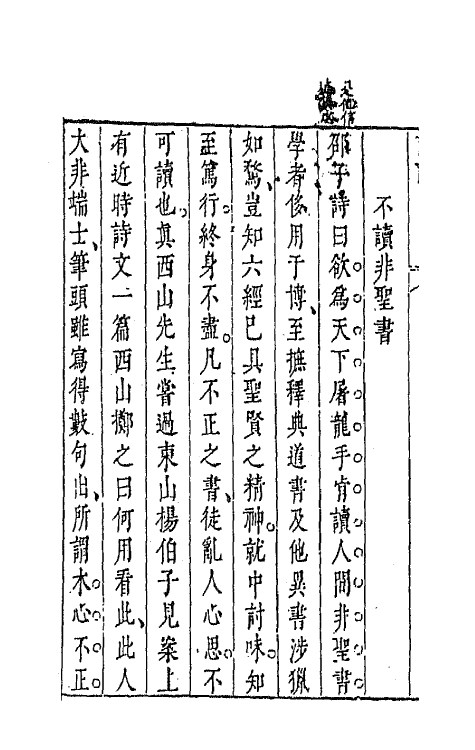 不讀非聖書
邵子詩曰欲爲天下屠龍手肯讀人間非聖書
學者侈用于博、至摭釋典道書及他異書涉獵
如騖、豈知六經已具聖賢之精神。就中討味。知
至篤行。終身不盡。凡不正之書、徒亂人心思。不
可讀也。眞西山先生嘗過東山楊伯子見案上
有近時詩文一篇西山擲之曰何用看此、此人
大非端士、筆頭雖寫得數句出、所謂木心不正